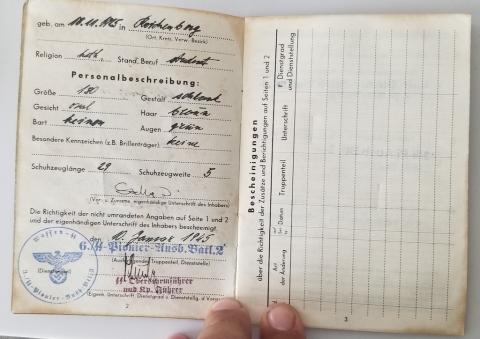 geb. am 10.11.1925 in
(Ort, Kreis, Verw. Bezirk)
Religion Stand, Beruf Student
Personalbeschreibung:
Größe 180 Gestalt schlank
Gesicht oval Haar braun
Bart keinen Augen grün
Besondere Kennzeichen (z.B. Brillenträger): keine
Schuhzeuglänge 29 Schuhzeugweite 5
(Vor- u. Zuname, eigenhändige Unterschrift des Inhabers)
Die Richtigkeit der nicht umrandeten Angaben auf Seite 1 und 2
und der eigenhändigen Unterschrift des Inhabers bescheinigt.
den Januar 1945
Waffen-SS
(Dienststempel)
(Ausfertigender Truppenteil, Dienststelle)
SS Obersturmführer
und Kp. Führer
(Eigenh. Unterschrift, Dienstgrad u. Dienststellg. d. Vorges.)
2
Bescheinigungen
über die Richtigkeit der Zusätze und Berichtigungen auf Seiten 1 und 2
Art der Änderung
Datum
Truppenteil
Unterschrift
Dienstgrad und Dienststellung
3